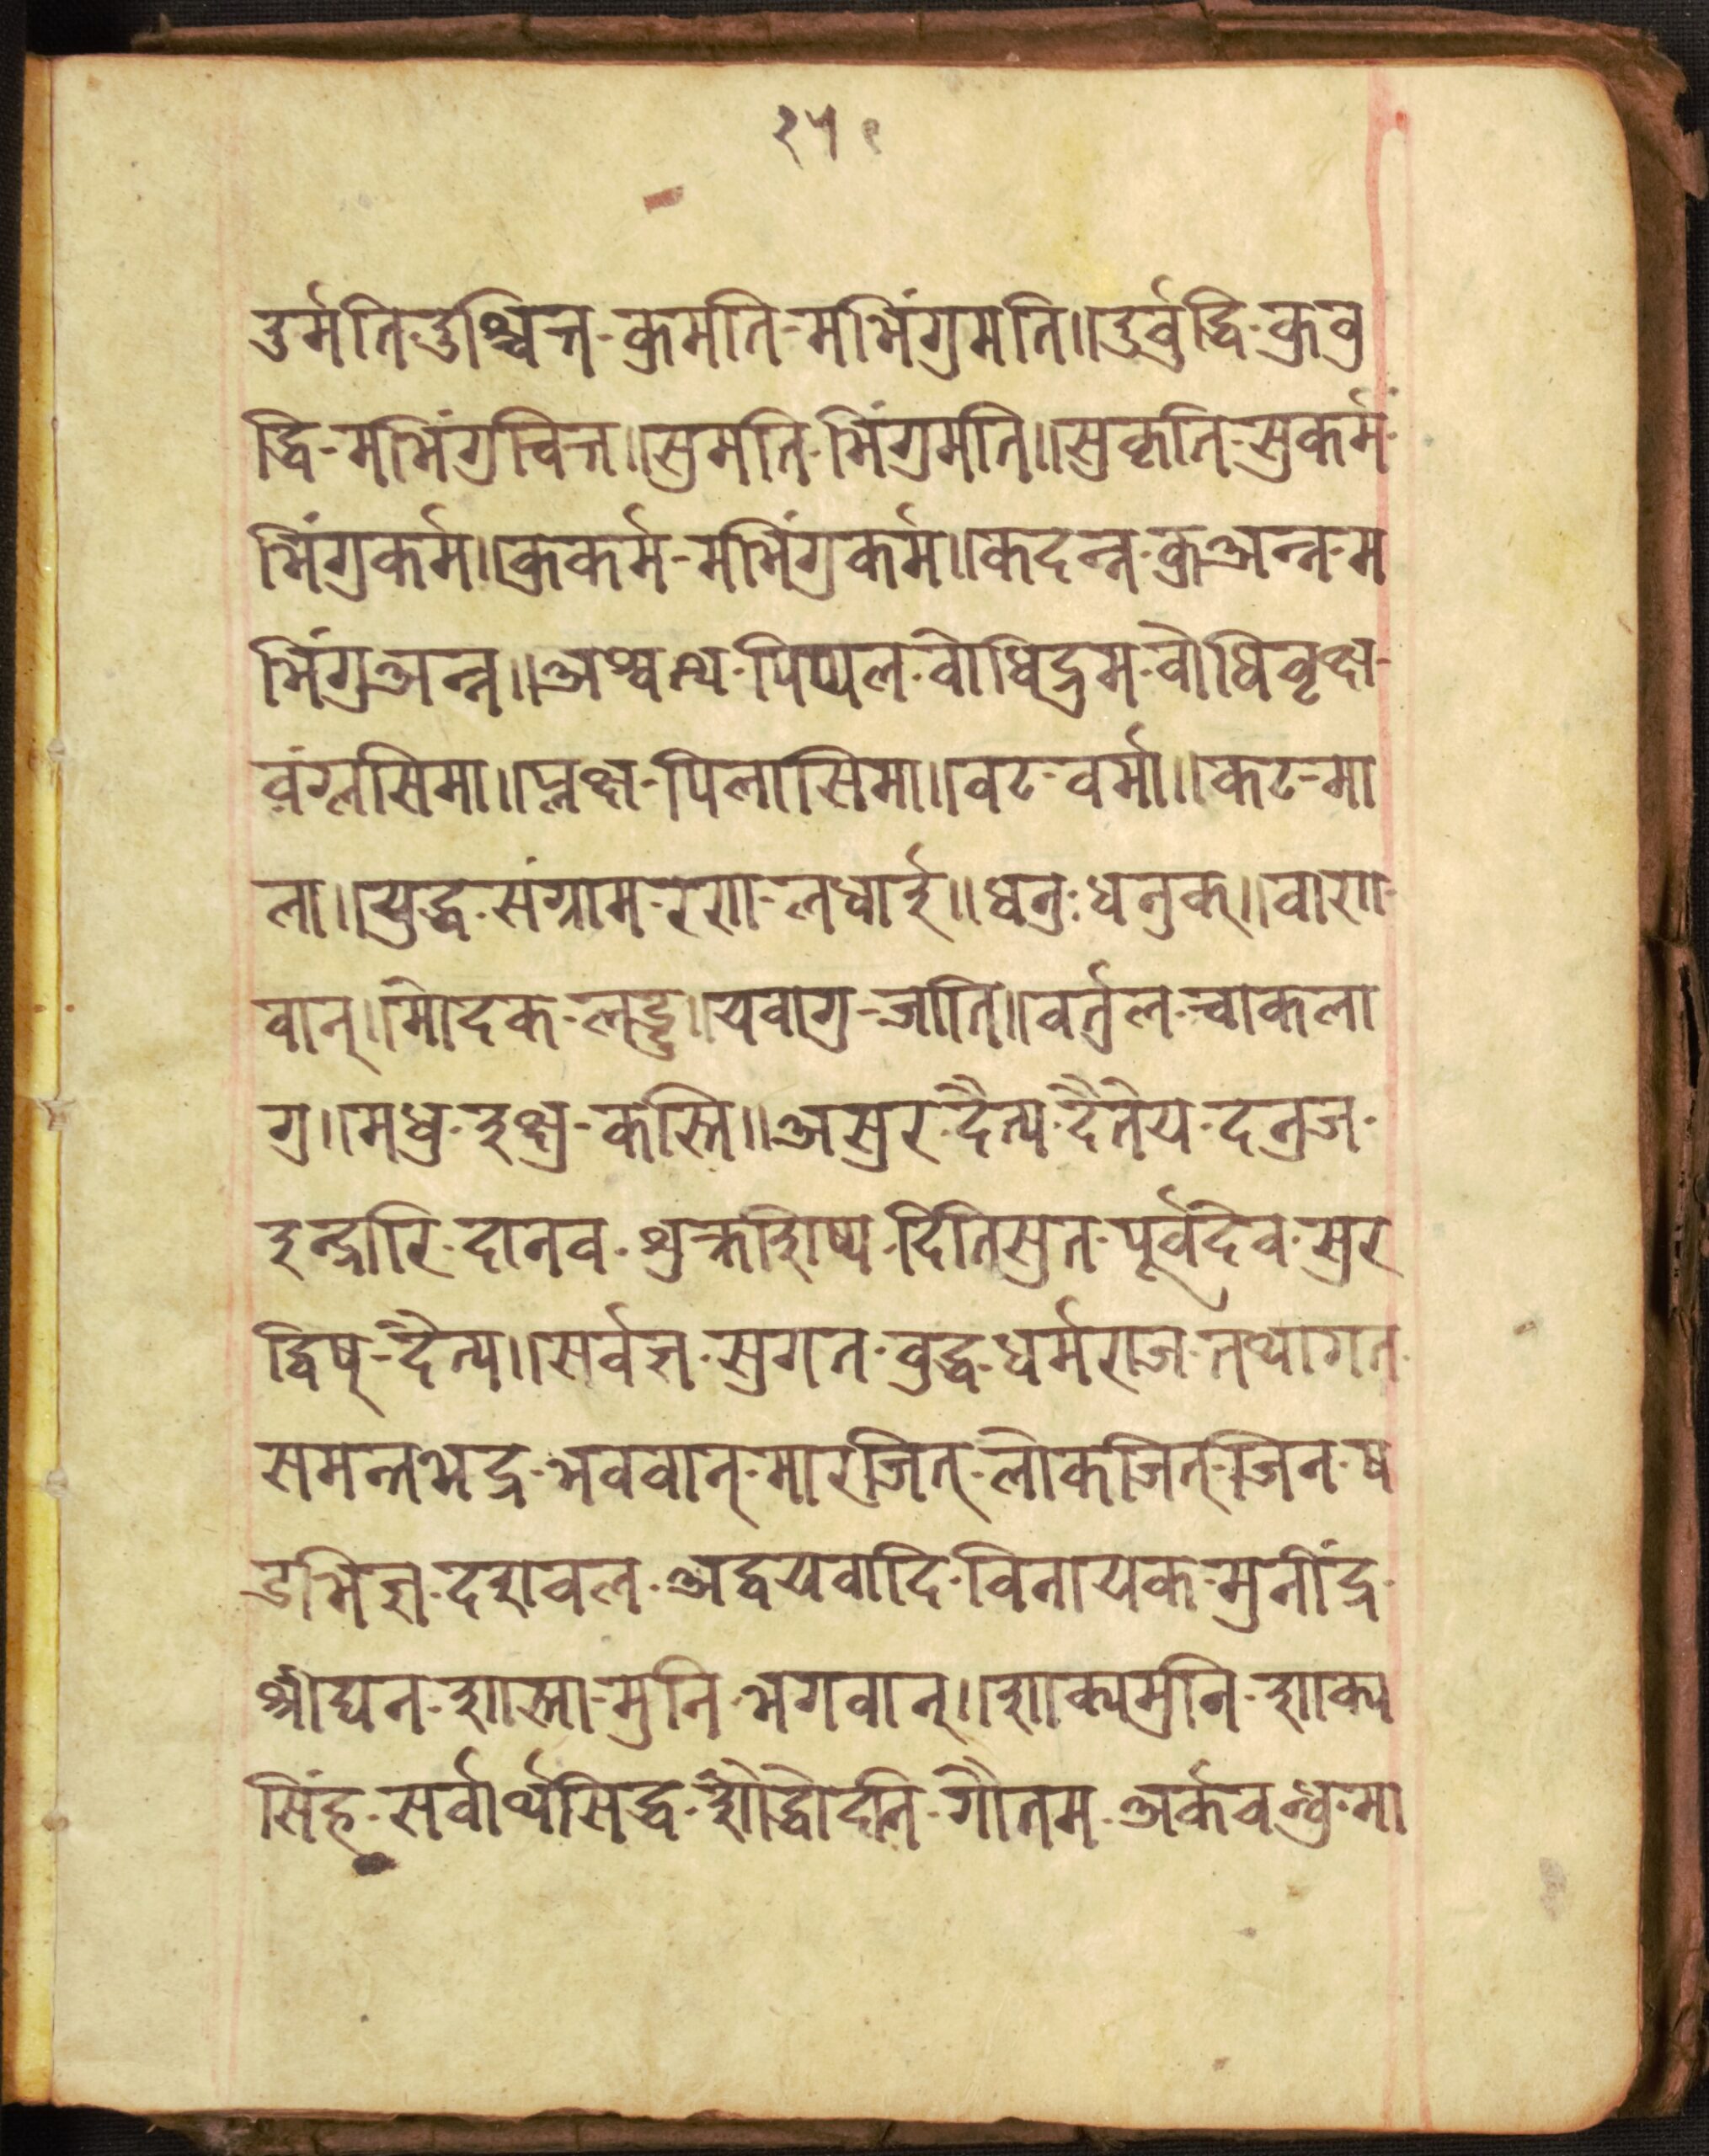 २५१
दुर्मति-दुश्चित्त-कुमति-मभिंगुमति॥दुर्वुद्धि-कुवु
द्धि-मभिंगुचित्त॥सुमति-भिंगुमति॥सुकृति-सुकर्मं-
भिंगुकर्म॥कुकर्म-मभिंगुकर्म॥कदन्न-कुअन्न-म
भिंगुअन्न॥अश्वत्थ-पिप्पल-वोधिद्रुम-वोधिवृक्ष-
वंग्लसिमा॥प्लक्ष-पिलासिमा॥वट-वर्मा॥कट-मा
ला॥युद्ध-संग्राम-रण-लध्वाई॥धनुः धनुक्॥वाण-
वान्॥मोदक-लड्डु॥यवागु-जाति॥वर्तुल-चाकला
गु॥मधु-इक्षु-कस्ति॥असुर-दैत्य-दैतेय-दनुज-
इन्द्रारि-दानव-शुक्रशिष्य-दितिसुत-पूर्वदेव-सुर
द्विष्-दैत्य॥सर्वज्ञ-सुगत-वुद्ध-धर्मराज-तथागत-
समन्तभद्र-भववान्-मारजित्-लोकजित्-जिन-ष
डभिज्ञ-दशवल-अद्वयवादि-विनायक-मुनींद्र-
श्रीघन-शास्ता-मुनि-भगवान्॥शाक्यमुनि-शाक्य
सिंह-सर्वार्थसिद्ध-शौद्धोदनि-गौतम-अर्कवन्धु-मा